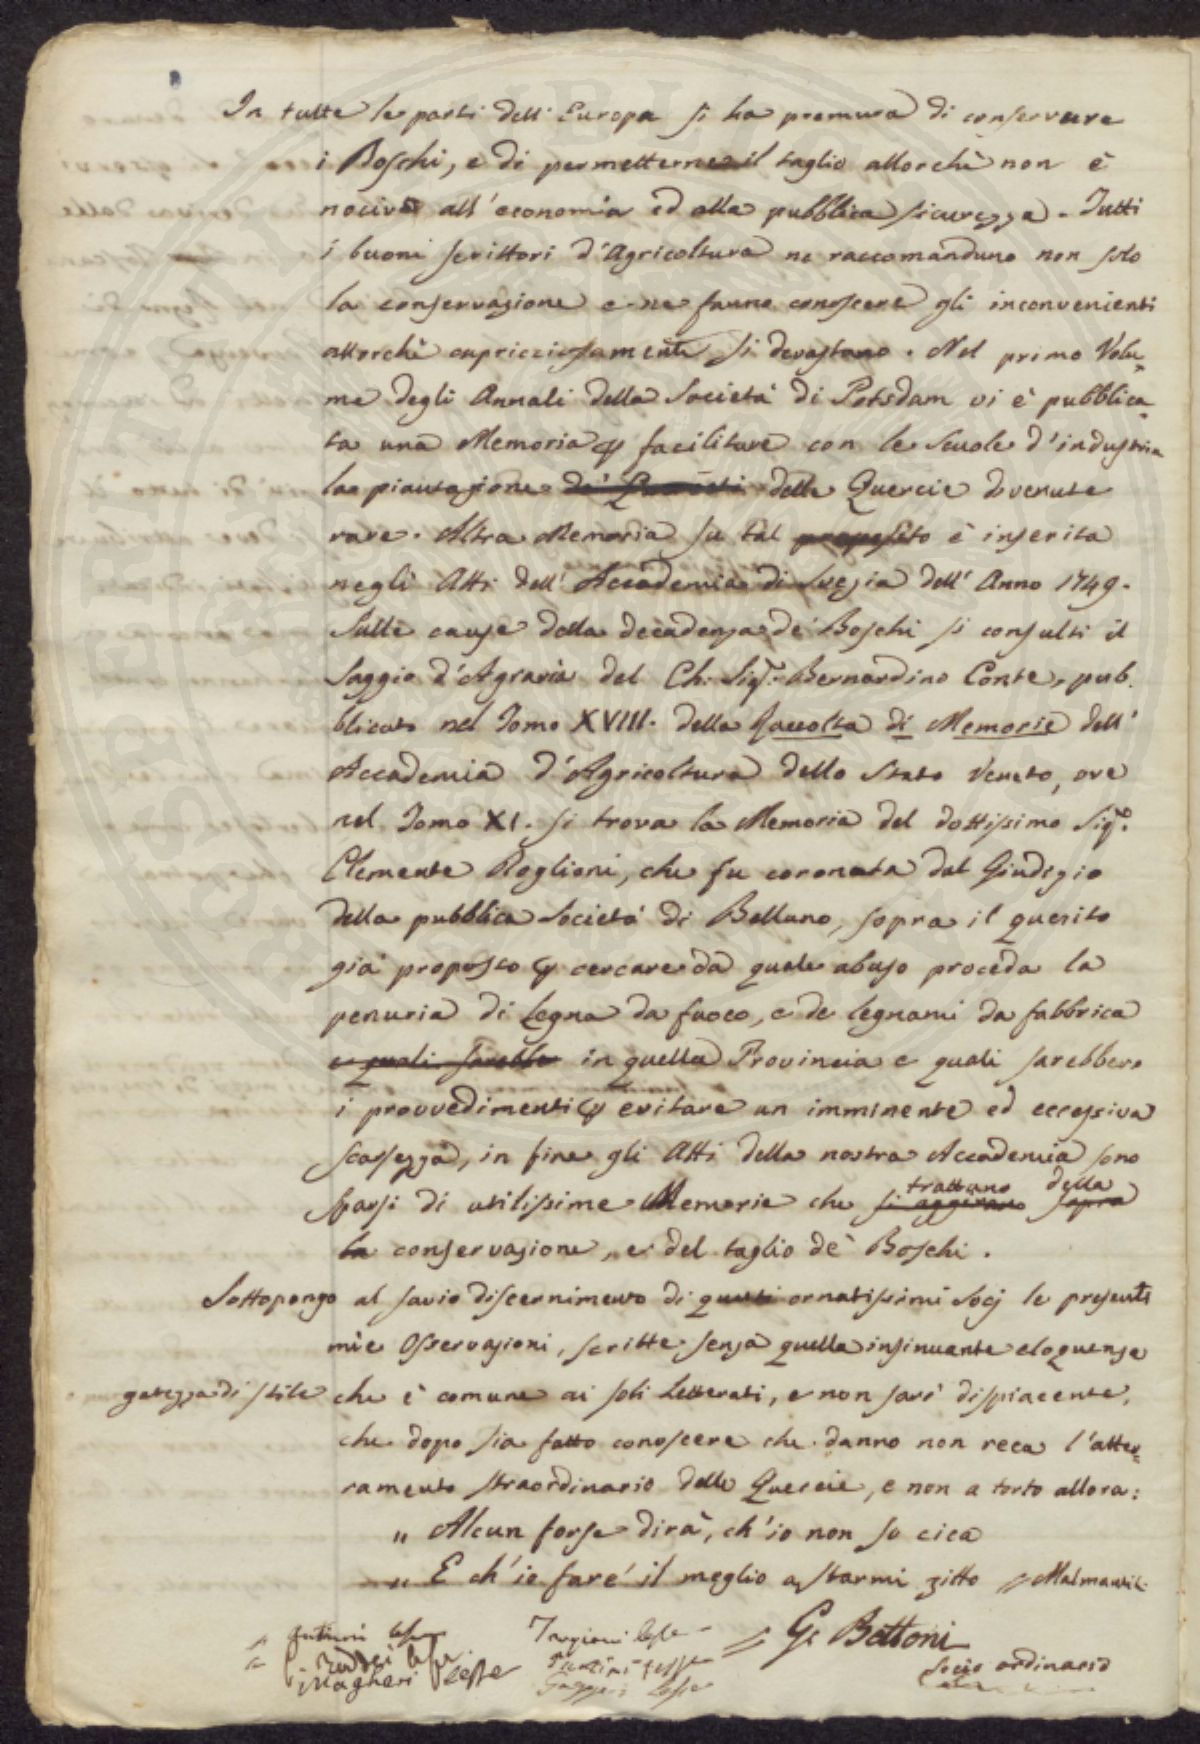 In tutte le parti dell' Europa si ha premura di conservare
i Boschi, e di permetterne il taglio allorchè non è
nocivo all'economia ed alla pubblica sicurezza. Tutti
i buoni scrittori d'Agricoltura ne raccomandano non solo
la conservazione e ne fanno conoscere gli inconvenienti
allorchè capricciosamente si devastano. Nel primo Volu-
me degli Annali della Società di Potsdam vi è pubblica-
ta una Memoria p facilitare con le Scuole d'industria
la piantazione de' delle Quercie divenute
rare. Altra Memoria su tal proposito è inserita
negli Atti dell' Accademia di Svezia dell' Anno 1749.
Sulle cause della decadenza de' Boschi si consulti il
Saggio d'Agraria del Ch: Sigr. Bernardino Conte, pub.
blicato nel Tomo XVIII. della Raccolta di Memorie dell'
Accademia d'Agricoltura dello Stato Veneto, ove
nel Tomo XI. si trova la Memoria del dottissimo Sigr.
Clemente Roglioni, che fu coronata dal Giudizio
della pubblica Società di Belluno, sopra il quesito
già proposto p cercare da quale abuso proceda la
penuria di Legna da fuoco, e de legnami da fabbrica
e quali sarebbe in quella Provincia e quali sarebbero
i provvedimenti p evitare un imminente ed eccessiva
scarsezza, in fine gli Atti della nostra Accademia sono
sparsi di utilissime Memorie che si aggirano trattano sopra della
la conservazione, e del taglio de' Boschi.
Sottopongo al savio discernimento di questi ornatissimi Socj le presenti
mie Osservazioni, scritte senza quella insinuante eloquenza
gatezza di stile che è comune ai soli Letterati, e non sarà dispiacente,
che dopo sia fatto conoscere che danno non reca l'atter-
ramento straordinario delle Quercie, e non a torto allora:
" Alcun forse dirà, ch'io non so cica
" E ch'io farè il meglio a starmi zitto Malmantil:
Targioni lesse
G. Bettoni
Socio ordinario
Magheri lesse